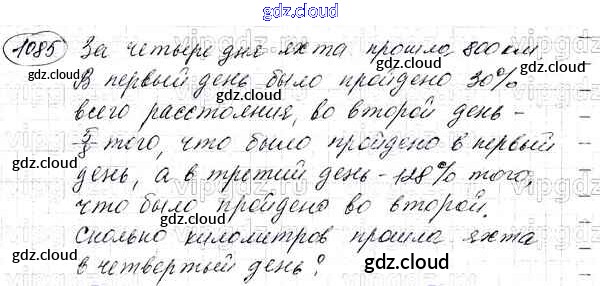 gdz.cloud
1085 За четыре дня яхта прошла 800 км.
В первый день было пройдено 30%
всего расстояния, во второй день -
5/8 того, что было пройдено в первый
день, а в третий день - 128% того,
что было пройдено во второй.
Сколько километров прошла яхта
в четвертый день?